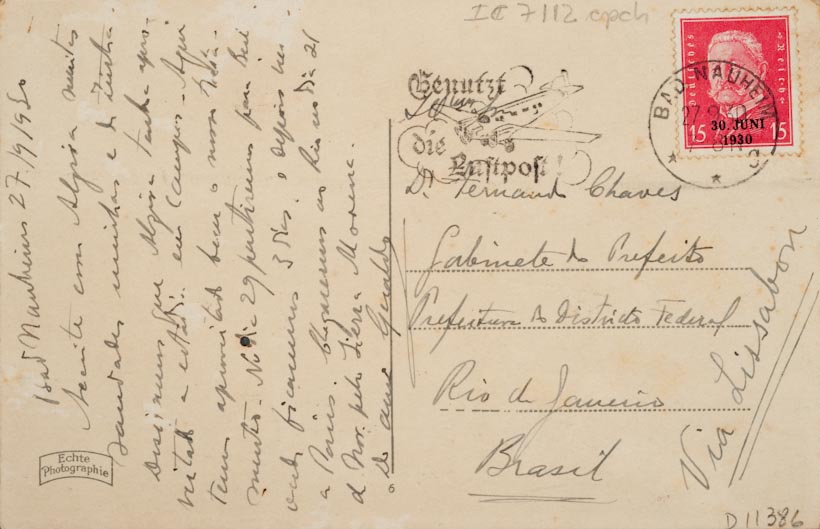 Bad Nauheim 27/9/930
Aceite com Alzira muitas
saudades minhas e de
Desejamos que Alzira tenha apro-
veitado a estadia em Campos. Aqui
temos aproveitado bem o nosso
No dia 29 partiremos para
onde ficaremos 3 dias. e depois
a Paris. Chegaremos ao Rio no dia 21
d Nov. pelo Sierra Morena.
Do amo Geraldo
Echte
Photographie
6
IC 7112 cpch
Benutzt
die
Luftpost!
BAD NAUHEIM
Deutsches Reich
30. JUNI
1930
15 15
Dr. Fernando Chaves
Gabinete do Prefeito
Prefeitura do Districto Federal
Rio de Janeiro
Brasil
Via Lissabon
D 11386